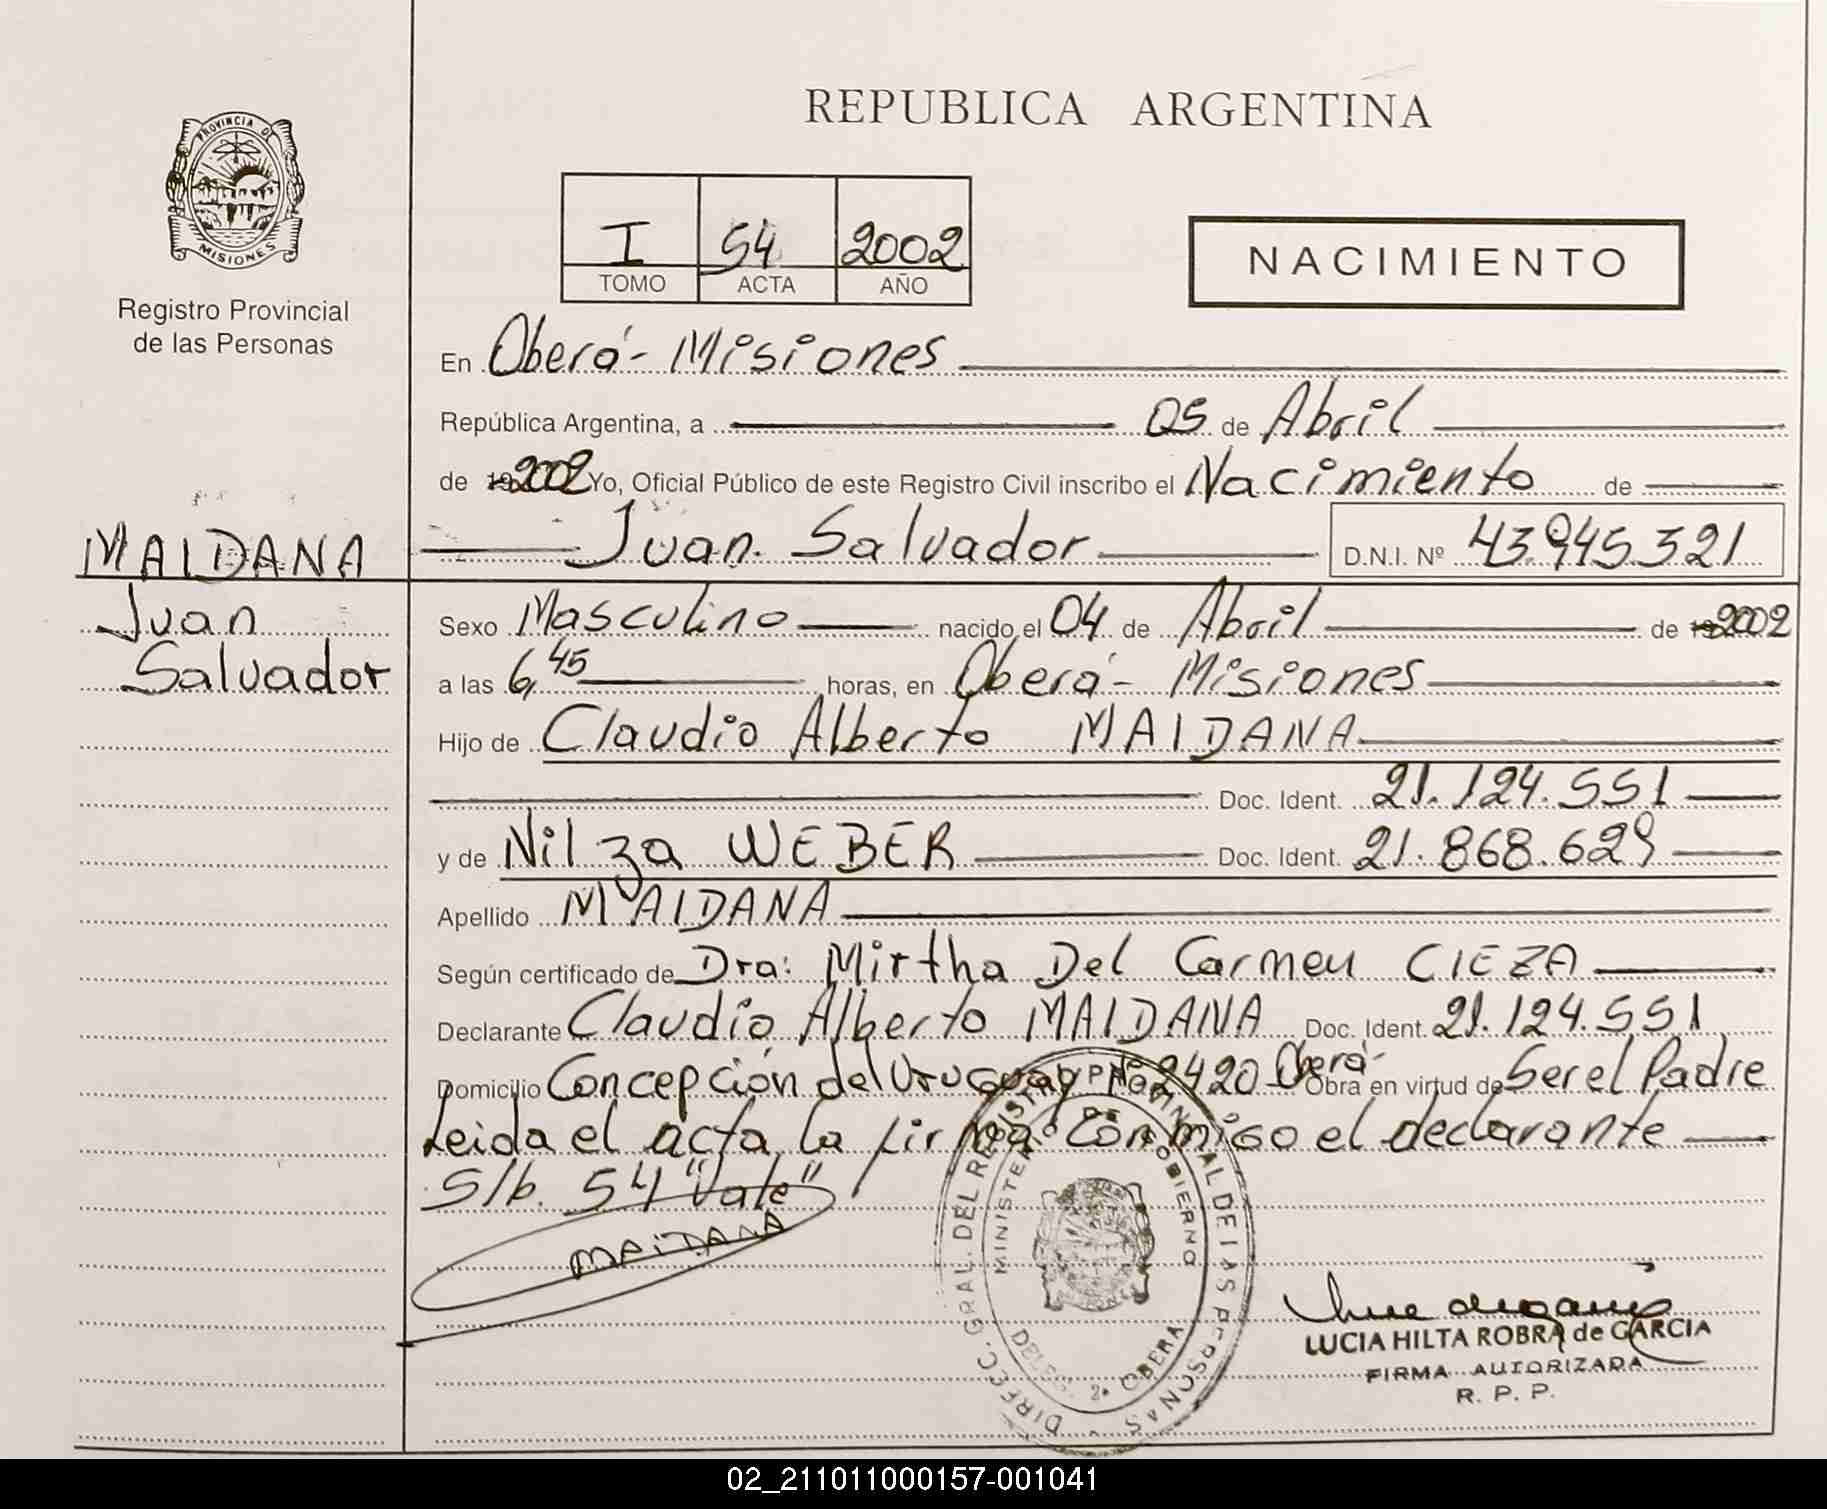 REPUBLICA ARGENTINA
PROVINCIA DE
MISIONES
Registro Provincial
de las Personas
I 54 2002
TOMO ACTA AÑO
NACIMIENTO
En Oberá - Misiones
República Argentina, a 05 de Abril
de 19 2002 Yo, Oficial Público de este Registro Civil inscribo el Nacimiento de
MAIDANA
Juan Salvador D.N.I. Nº 43.945.321
Juan
Salvador
Sexo Masculino nacido el 04 de Abril de 19 2002
a las 6,45 horas, en Oberá - Misiones
Hijo de Claudio Alberto MAIDANA
Doc. Ident. 21.124.551
y de Nilza WEBER Doc. Ident. 21.868.629
Apellido MAIDANA
Según certificado de Dra: Mirtha Del Carmen CIEZA
Declarante Claudio Alberto MAIDANA Doc. Ident. 21.124.551
Domicilio Concepción del Uruguay Nº 2420 Oberá- Obra en virtud de Ser el Padre
Leida el acta, la firma conmigo el declarante
S/b. 54 "Vale"
MAIDANA
DIREC. GRAL. DEL REGISTRO PROVINCIAL DE LAS PERSONAS
MINISTERIO DE GOBIERNO
DELEG. 2ª OBERA
LUCIA HILTA ROBRA de GARCIA
FIRMA AUTORIZADA
R. P. P.
02_211011000157-001041